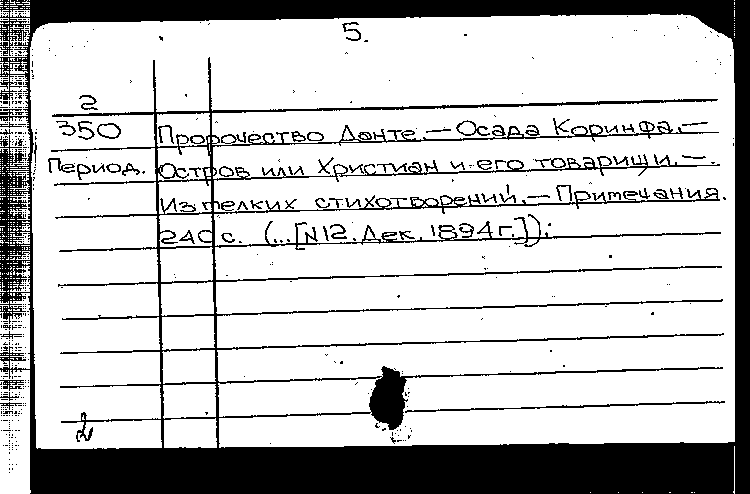 5.
2
350 Пророчество Данте. — Осада Коринфа. —
Период. Остров или Христиан и его товарищи. —.
Из мелких стихотворений. — Примечания.
240 с. (...[N12. Дек. 1894 г.]);
2